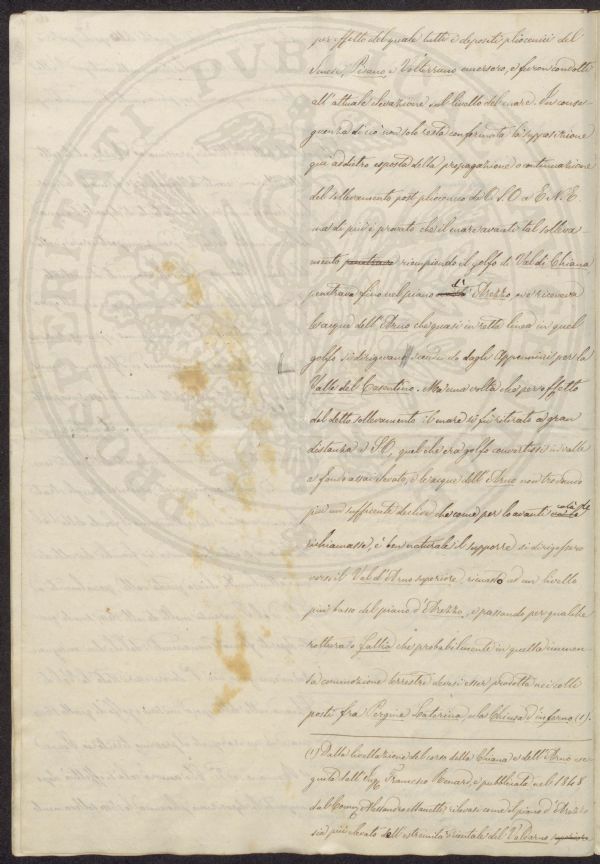 per effetto del quale tutti i depositi pliocenici del
Senese, Pisano, e Volterrano emersero, e furon condotti
all'attuale elevazione sul livello del mare. In conse-
guenza di ciò non solo resta confermata la supposizione
qui addietro esposta della propagazione o continuazione
del sollevamento post pliocenico da S. O a E. N. E
ma di più è provato che il mare avanti tal solleva-
mento penetrava riempiendo il golfo di Val di Chiana
penetrava fino nel piano di Arezzo, ove riceveva
le acque dell'Arno che quasi in retta linea in quel
golfo si dirigevano scendendo dagli Appennini per la
Valle del Casentino. Ma una volta che per effetto
del detto sollevamento il mare si fu ritirato a gran
distanza a S.O, quel che era golfo convertissi in valle
a fondo assai elevato, e le acque dell'Arno non trovando
più un sufficiente declive che come per lo avanti colà le
richiamasse, è ben naturale il supporre si dirigessero
verso il Val d'Arno superiore, rimasto ad un livello
più basso del piano d'Arezzo, e passando per qualche
rottura o faltia che probabilmente in quella immen-
sa commozione terrestre devesi esser prodotta nei colli
posti fra Pergine Laterina, e la Chiusa d'inferno (1).
(1) Dalla livellazione del corso della Chiana e dell'Arno ese-
guita dall'Ing. Francesco Renard, e pubblicata nel 1848
dal Comm. Alessandro Manetti, rilevasi come il piano d'Arezzo
sia più elevato dell'estremità orientale del Valdarno superiore